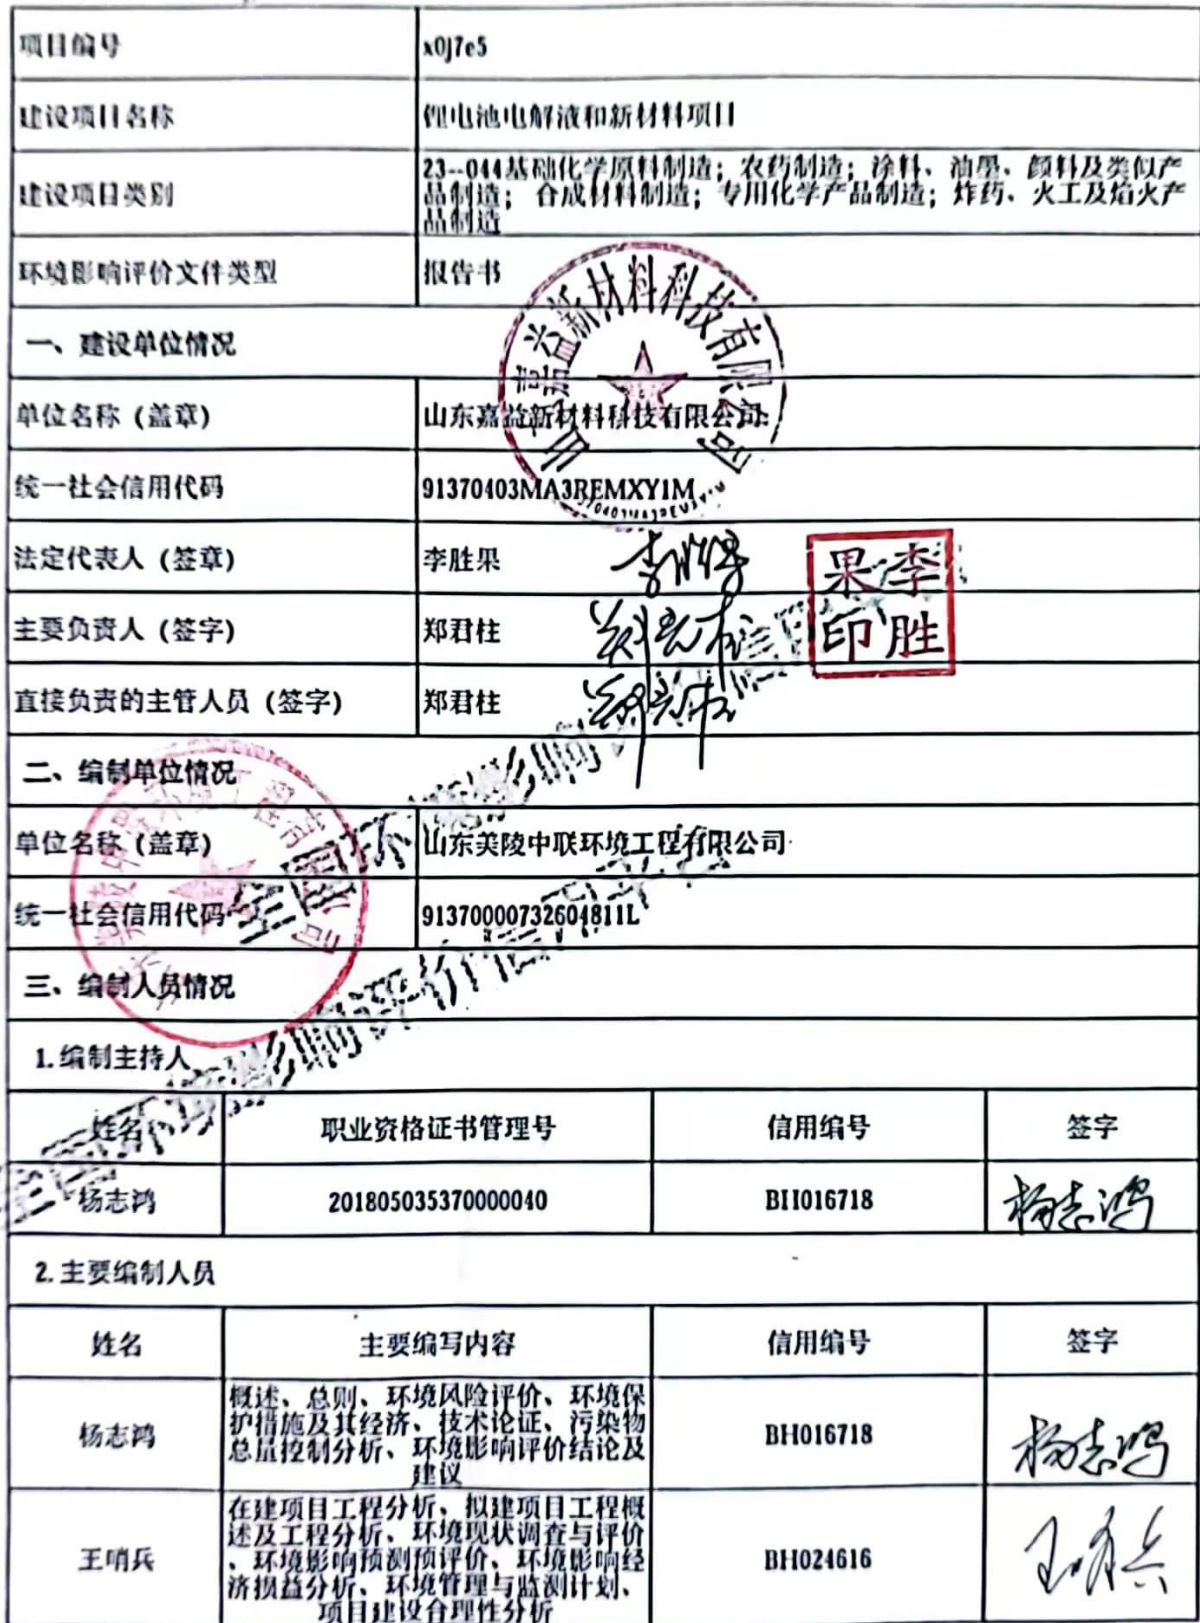 项目编号 x0j7e5
建设项目名称 锂电池电解液和新材料项目
建设项目类别 23--044基础化学原料制造；农药制造；涂料、油墨、颜料及类似产
品制造；合成材料制造；专用化学产品制造；炸药、火工及焰火产
品制造
环境影响评价文件类型 报告书
一、建设单位情况
单位名称（盖章） 山东嘉益新材料科技有限公司
统一社会信用代码 91370403MA3REMXY1M
法定代表人（签章） 李胜果
李胜果印
主要负责人（签字） 郑君柱
直接负责的主管人员（签字） 郑君柱
二、编制单位情况
单位名称（盖章） 山东美陵中联环境工程有限公司
统一社会信用代码 91370000732604811L
三、编制人员情况
1.编制主持人
姓名 职业资格证书管理号 信用编号 签字
杨志鸿 201805035370000040 BH016718 杨志鸿
2.主要编制人员
姓名 主要编写内容 信用编号 签字
概述、总则、环境风险评价、环境保
护措施及其经济、技术论证、污染物
杨志鸿 总量控制分析、环境影响评价结论及 BH016718 杨志鸿
建议
在建项目工程分析、拟建项目工程概
述及工程分析、环境现状调查与评价
王哨兵 、环境影响预测预评价、环境影响经 BH024616 王哨兵
济损益分析、环境管理与监测计划、
项目建设合理性分析
山东嘉益新材料科技有限公司